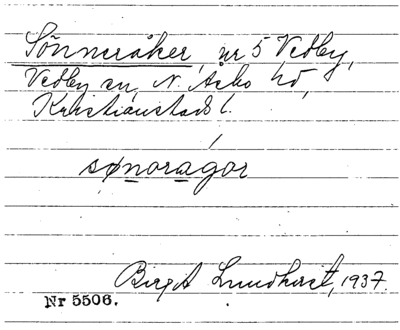 Sönneråker, nr 5 Vedby,
Vedby sn, N. Åsbo hd,
Kristianstads l.
sønoragor
Birgit Lundkvist, 1937.
Nr 5506.